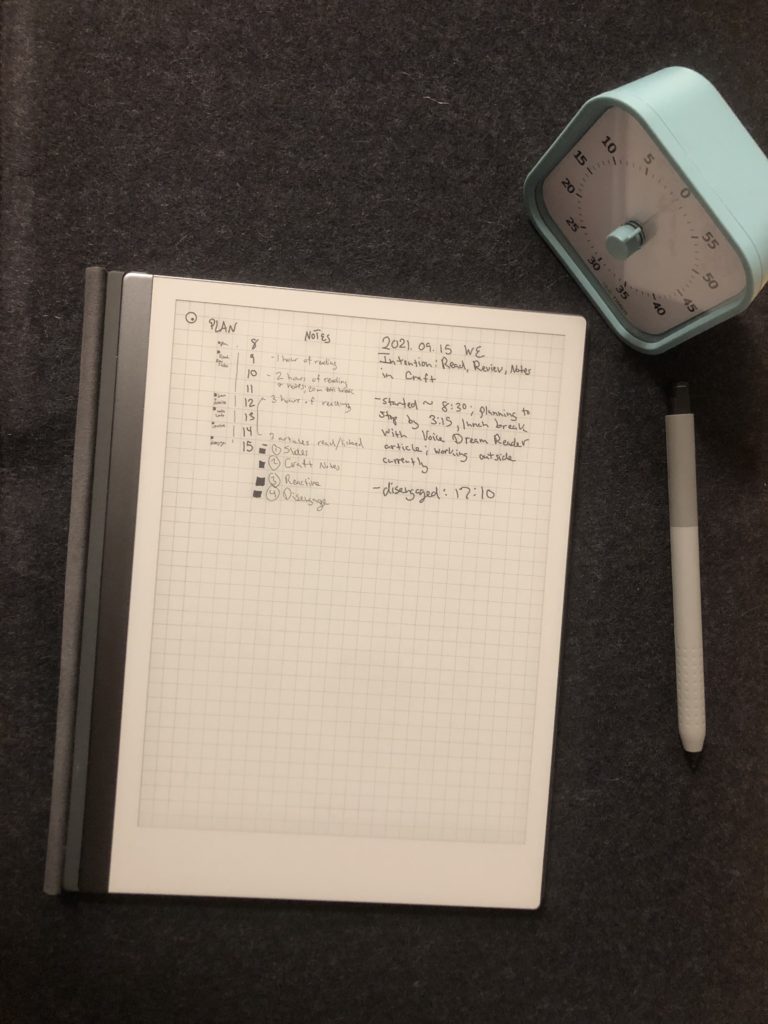 PLAN
NOTES
8
9 - 1 hour of reading
10 - 2 hours of reading
11
12 3 hours of reading
13
14
15 2 articles read/
① Slides
② Craft Notes
③ Reactive
④ Disengage
2021. 09. 15 WE
Intention: Read, Review, Notes
in Craft
- started ~ 8:30; planning to
stop by 3:15, lunch break
with Voice Dream Reader
article; working outside
currently
- disengaged: 17:10
0
5
10
15
20
25
30
35
40
45
50
55